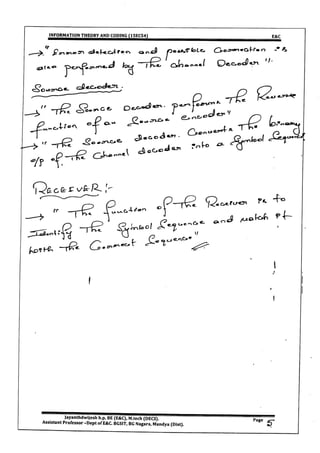 INFORMATION THEORY AND CODING (15EC54) E&C
→ " Error detection and possible Correction is
also performed by The channel Decoder ".
Source decoder:
→ " The Source Decoder. performs The Reverse
function of an Source encoder"
→ " The Source decoder. Converts The binary
o/p of The Channel decoder into a Symbol Sequence
RECEIVER :-
→ " The function of The Receiver is to
Identify The Symbol Sequence and match it
with The Correct Sequence "
Jayanthdwijesh h.p, BE (E&C), M.tech (DECS).
Assistant Professor –Dept of E&C. BGSIT, BG Nagara, Mandya (Dist). Page 5